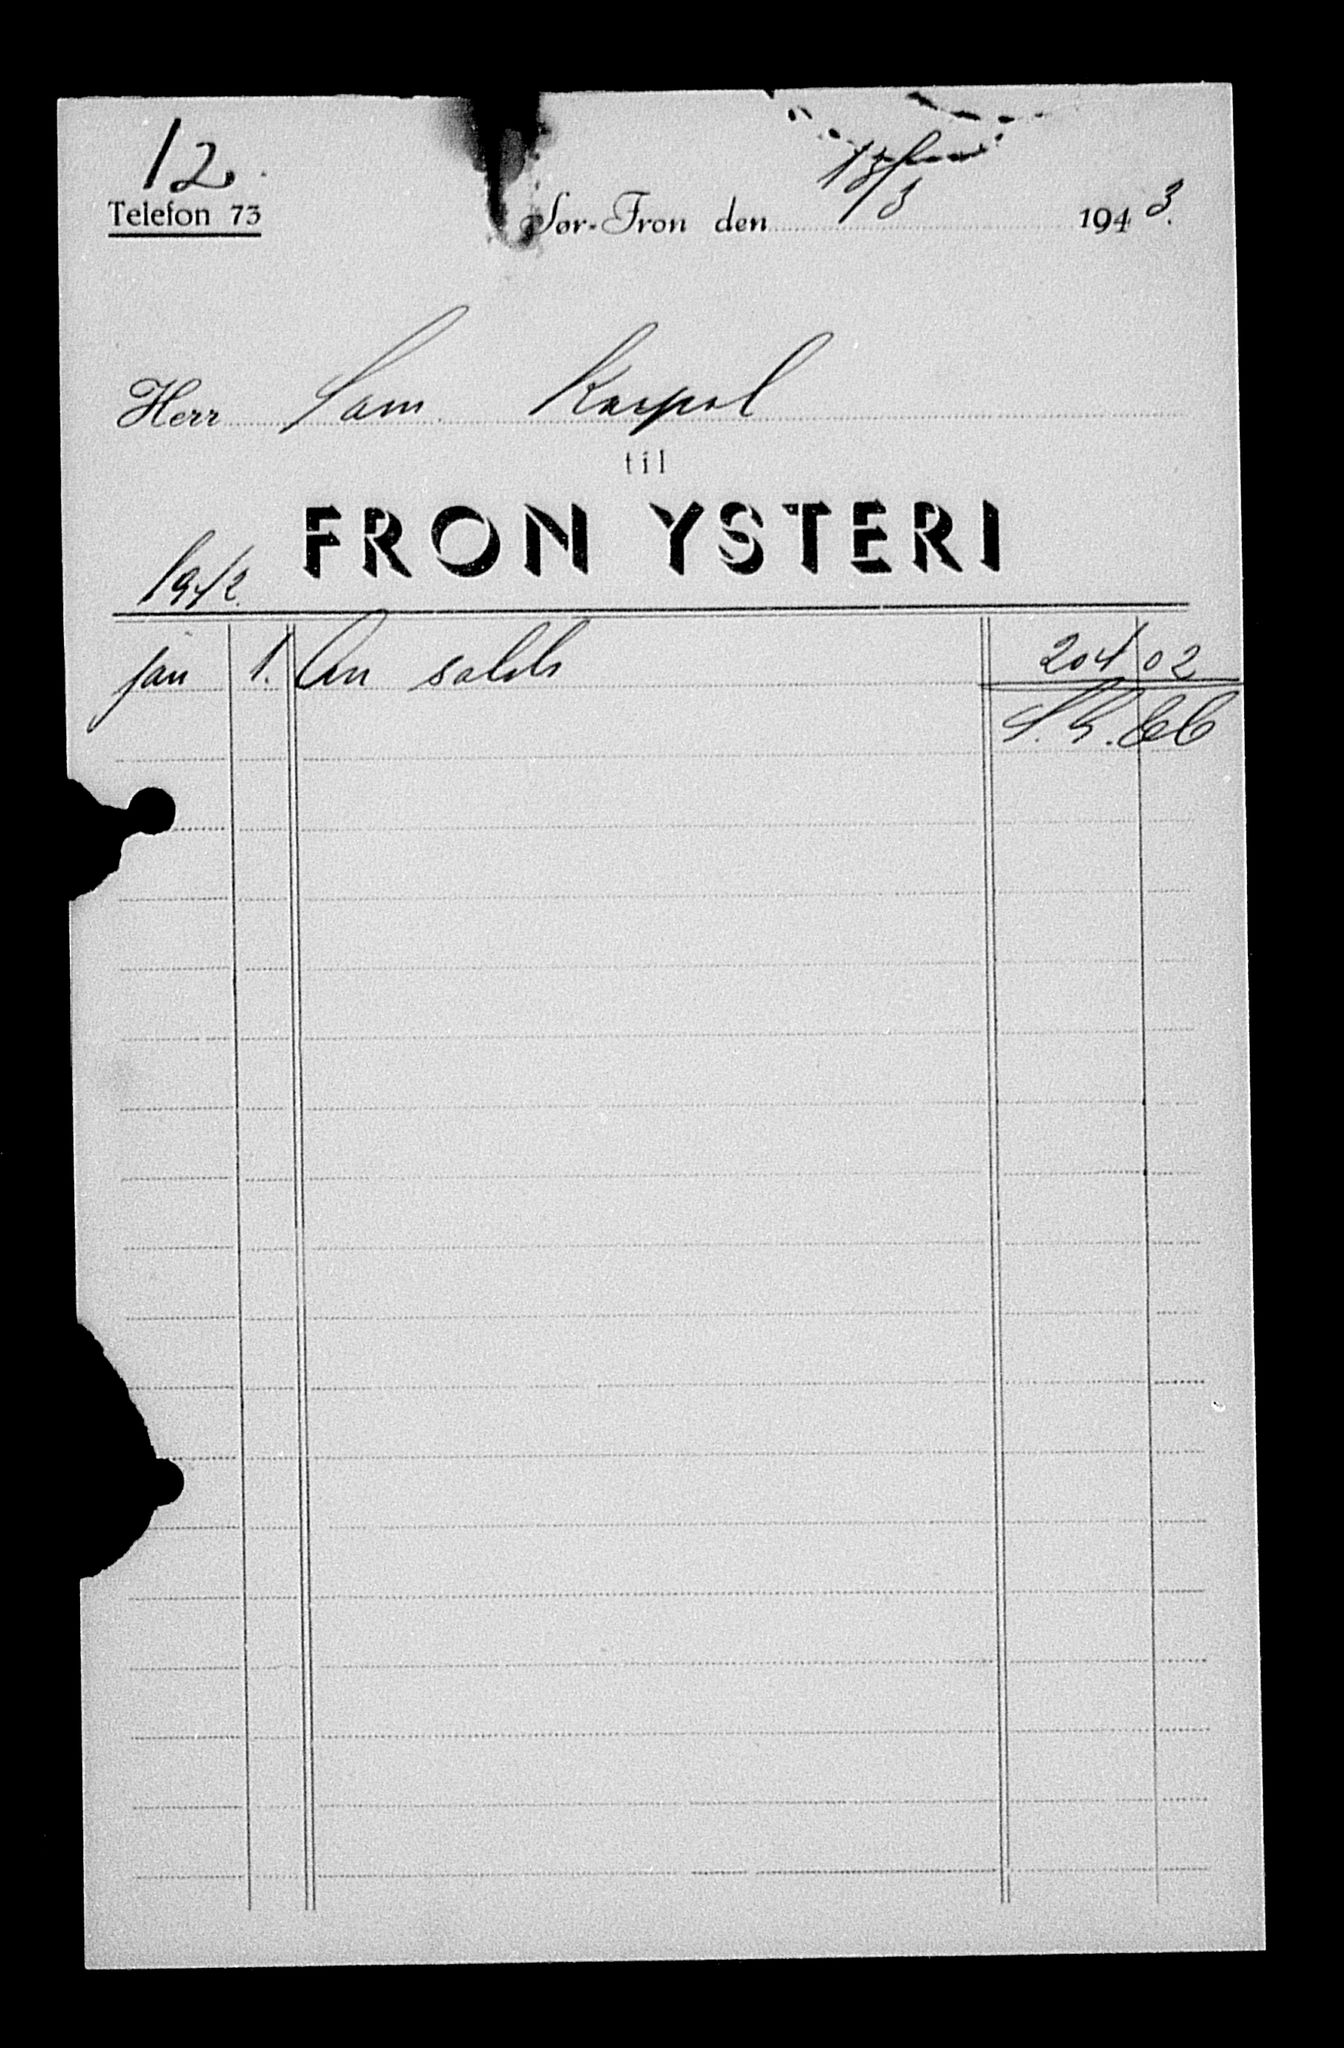 12.
Telefon 73
Sør-Fron den 13/3 1943.
Herr Sam Karpol
til
FRON YSTERI
1942.
jan 1. An saldo 204 02